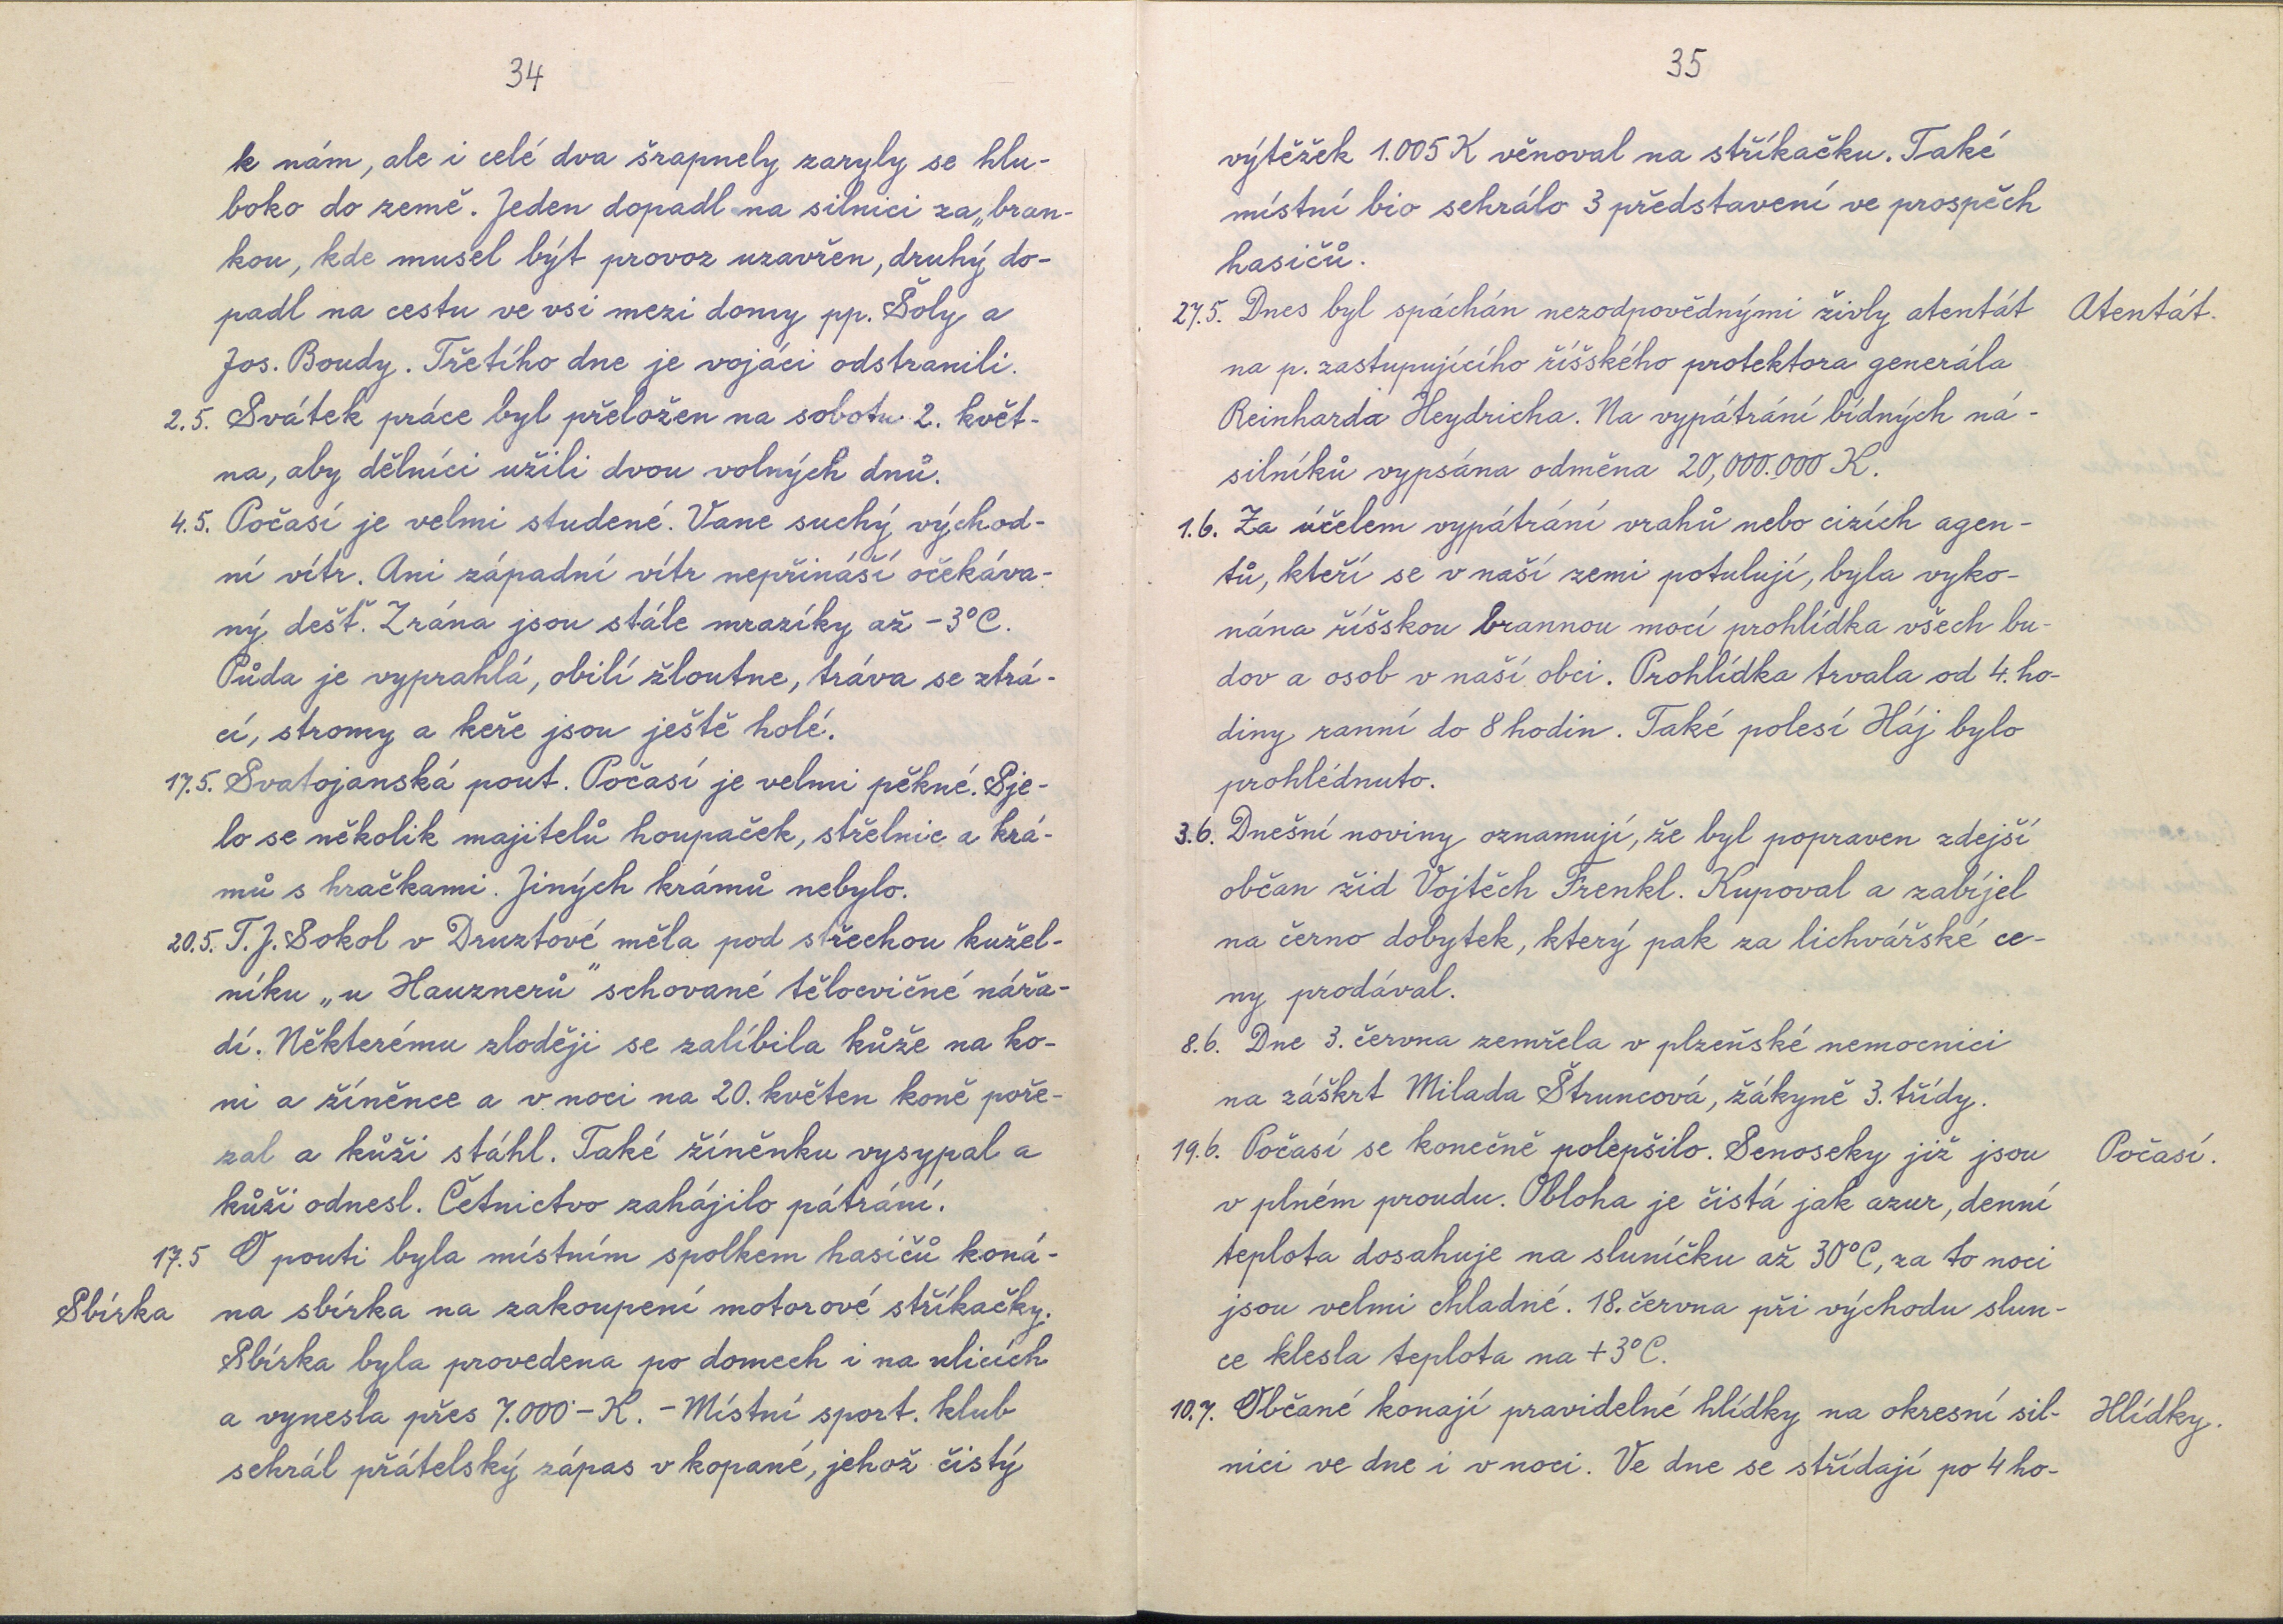 34
k nám, ale i celé dva šrapnely zaryly se hlu-
boko do země. Jeden dopadl na silnici za „bran-
kou, kde musel být provoz uzavřen, druhý do-
padl na cestu ve vsi mezi domy pp. Šoly a
Jos. Boudy. Třetího dne je vojáci odstranili.
2.5. Svátek práce byl přeložen na sobotu 2. květ-
na, aby dělníci užili dvou volných dnů.
4.5. Počasí je velmi studené. Vane suchý východ-
ní vítr. Ani západní vítr nepřináší očekáva-
ný dešť. Zrána jsou stále mrazíky až -3°C.
Půda je vyprahlá, obilí žloutne, tráva se ztrá-
cí, stromy a keře jsou ještě holé.
17.5. Svatojanská pout. Počasí je velmi pěkné. Sje-
lo se několik majitelů houpaček, střelnic a krá-
mů s hračkami. Jiných krámů nebylo.
20.5. T.J. Sokol v Druztové měla pod střechou kužel-
níku „u Hauznerů" schované tělocvičné nářa-
dí. Některému zloději se zalíbila kůže na ko-
ni a žíněnce a v noci na 20. květen koně pоře-
zal a kůži stáhl. Také žíněnku vysypal a
kůži odnesl. Četnictvo zahájilo pátrání.
17.5 O pouti byla místním spolkem hasičů koná-
Sbírka na sbírka na zakoupení motorové stříkačky.
Sbírka byla provedena po domech i na ulicích
a vynesla přes 7.000 - K. - Místní sport. klub
sehrál přátelský zápas v kopané, jehož čistý
35
výtěžek 1.005 K věnoval na stříkačku. Také
místní bio sehrálo 3 představení ve prospěch
hasičů.
27.5. Dnes byl spáchán nezodpovědnými živly atentát Atentát.
na p. zastupujícího říšského protektora generála
Reinharda Heydricha. Na vypátrání bídných ná-
silníků vypsána odměna 20,000.000 K.
1.6. Za účelem vypátrání vrahů nebo cizích agen-
tů, kteří se v naší zemi potulují, byla vyko-
nána říšskou brannou mocí prohlídka všech bu-
dov a osob v naší obci. Prohlídka trvala od 4. ho-
diny ranní do 8 hodin. Také polesí Háj bylo
prohlédnuto.
3.6. Dnešní noviny oznamují, že byl popraven zdejší
občan žid Vojtěch Frenkl. Kupoval a zabíjel
na černo dobytek, který pak za lichvářské ce-
ny prodával.
8.6. Dne 3. června zemřela v plzeňské nemocnici
na záškrt Milada Štruncová, žákyně 3. třídy.
19.6. Počasí se konečně polepšilo. Senoseky již jsou Počasí.
v plném proudu. Obloha je čistá jak azur, denní
teplota dosahuje na sluníčku až 30°C, za to noci
jsou velmi chladné. 18. června při východu slun-
ce klesla teplota na +3°C.
10.7. Občané konají pravidelné hlídky na okresní sil- Hlídky.
nici ve dne i v noci. Ve dne se střídají po 4 ho-